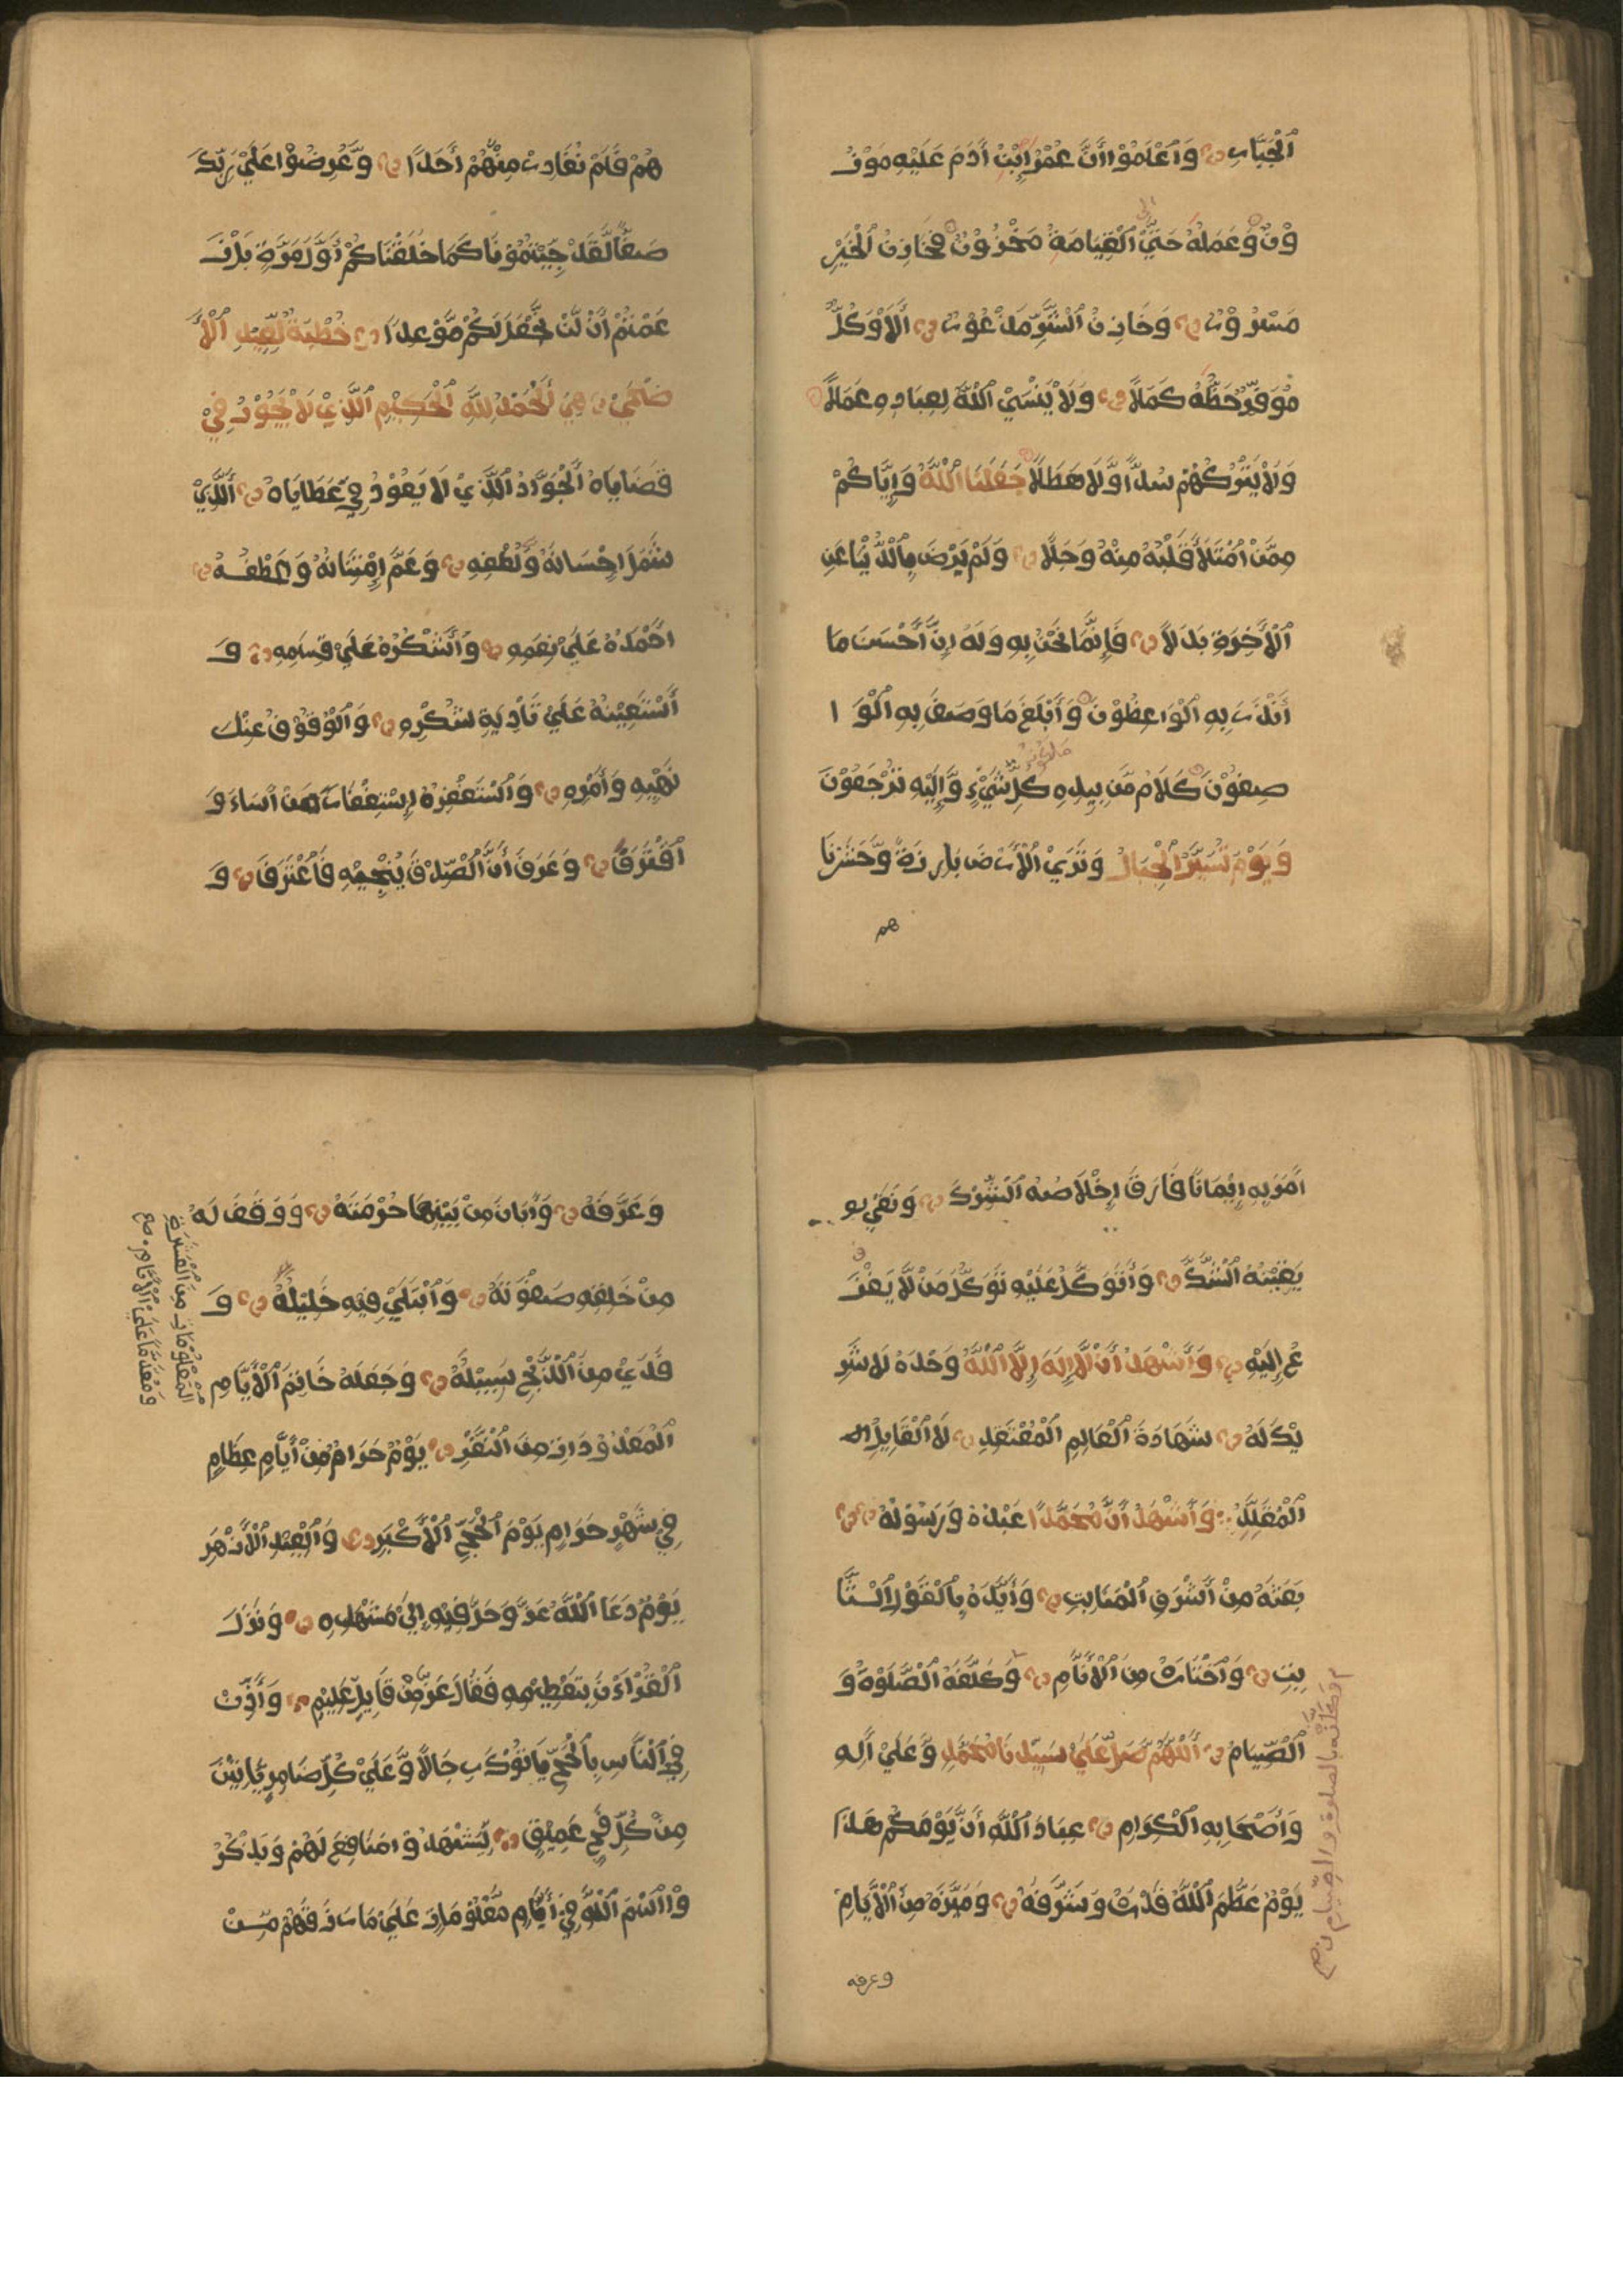 اَلْجَبَّارِ وَاَعْلَمُوْا اَنَّ عُمْرَ اِبْنْ اٰدَمَ عَلَيْهِ مَوْزُ
وْنٌ وَعَمَلُهُ حَتَّيْ اَلْقِيَامَةِ مَخْزُوْنٌ فَخَازِنُ الْخَيْرِ
مَسْرُوْرٌ وَخَازِنُ اَلشَّرِّ مَذْعُوْرٌ اَلَا وَكُلٌّ
مُوَفَّرٌ حَظُّهُ كَمَلًا وَلَا يَنْسَيْ اَللّٰهُ لِعِبَادِهِ عَمَلًا
وَلَا يَتْرُكُهُمْ سُدًا وَّلَا هَطَلًا جَعَلَنَا اَللّٰهُ وَاِيَّاكُمْ
مِمَّنْ اُمْتَلَأَ قَلْبُهُ مِنْهُ وَجَلًا وَلَمْ يَرْضَ بِاَلدُّنْيَا عَنِ
اَلْاٰخِرَةِ بَدَلًا فَاِنَّمَا نَحْنُ بِهِ وَلَهُ اِنَّ اَحْسَنَ مَا
اَنْذَرَ بِهِ اَلْوَاعِظُوْنَ وَاَبْلَغَ مَا وَصَفَ بِهِ اَلْوَا
صِفُوْنَ كَلَامُ مَّنْ بِيَدِهِ مَلَكُوْتُ كُلِّ شَيْءٍ وَّاِلَيْهِ تُرْجَعُوْنَ
وَيَوْمَ تُسَيَّرُ الْجِبَالُ وَتَرَيْ اَلْاَرْضَ بَارِزَةً وَّحَشَرْنَا
هم
هُمْ فَلَمْ نُغَادِرْ مِنْهُمْ اَحَدًا وَّعُرِضُوْا عَلَيْ رَبِّكَ
صَفًّا لَّقَدْ جِئْتُمُوْنَا كَمَا خَلَقْنَاكُمْ اَوَّلَ مَرَّةٍ بَلْ زَ
عَمْتُمْ اَنْ لَّنْ نَّجْعَلَ لَكُمْ مَّوْعِدًا خُطْبَةٌ لِّعِيْدِ اَلْاَ
ضْحَيْ هِيَ اَلْحَمْدُ لِلّٰهِ اَلْحَكِيْمِ اَلَّذِيْ لَا يَجُوْرُ فِيْ
قَضَايَاهُ اَلْجَوَّادُ اَلَّذِيْ لَا يَعُوْدُ فِيْ عَطَايَاهُ اَلَّذِيْ
شَمَلَ اِحْسَانُهُ وَلُطْفِهِ وَعَمَّ اِمْتِنَانُهُ وَعَطْفُهُ
اَحْمَدُهُ عَلَيْ نِعَمِهِ وَاَشْكُرُهُ عَلَيْ قِسَمِهِ وَ
اَسْتَعِيْنُهُ عَلَيْ تَادِيَةِ شُكْرِهِ وَاَلْوُقُوْفَ عِنْدَ
نَهْيِهِ وَاَمْرِهِ وَاَسْتَغْفِرُهُ اِسْتِغْفَارَ مَنْ اَسَاءَ وَ
اَقْتَرَفَ وَعَرَفَ اَنَّ اَلصِّدْقَ يُنْجِيْهِ فَاُعْتَرَفَ وَ
اٰمَرَ بِهِ اِيْمَانًا فَارَقَ اِخْلَاصُهُ اَلشِّرْكَ وَنَفَيْ بِو
يَقِيْنُهُ اَلشَّكَّ وَاَتَوَكَّلُ عَلَيْهِ تَوَكُّلَ مَنْ لَّا يَفْزَ
عُ اِلَيْهِ وَاَشْهَدُ اَنْ لَّا اِلٰهَ اِلَّا اَللّٰهُ وَحْدَهُ لَا شَرِ
يْكَ لَهُ شَهَادَةَ اَلْعَالِمِ اَلْمُعْتَقِدِ لَا اَلْقَايِلِ
اَلْمُقَلِّدِ وَاَشْهَدُ اَنَّ مُحَمَّدًا عَبْدُهُ وَرَسُوْلُهُ
بَعَثَهُ مِنْ اَشْرَفِ اَلْمَنَابِتِ وَاَيَّدَهُ بِاَلْقَوْلِ اَلثَّا
بِتِ وَاَخْتَارَهُ مِنَ اَلْاَنَامِ وَكَلَّفَهُ اَلصَّلٰوةَ وَ
اَلصِّيَامَ اَللّٰهُمَّ صَلِّ عَلَيْ سَيِّدِنَا مُحَمَّدٍ وَّعَلَيْ اٰلِهِ
وَاَصْحَابِهِ اَلْكِرَامِ عِبَادَ اَللّٰهِ اَنَّ يَوْمَكُمْ هٰذَا
يَوْمٌ عَظَّمَ اَللّٰهُ قَدْرَهُ وَشَرَّفَهُ وَمَيَّزَهُ مِنَ اَلْاَيَّامِ
وكلفه بالصلوة والصيام
وعرفه
وَعَرَّفَهُ وَاَبَانَ مِنْ بَيْنِهَا حُرْمَتَهُ وَوَقَفَ لَهُ
مِنْ خَلِقِهِ صَفْوَتَهُ وَاَبْتَلَيْ فِيْهِ خَلِيْلَهُ وَ
فَدَيْ مِنَ اَلذَّبْحِ سَبِيْلَهُ وَجَعَلَهُ خَاتِمَ اَلْاَيَّامِ
اَلْمَعْدُوْدَاتِ مِنَ اَلنَّفْرِ يَوْمٌ حَرَامٌ مِّنْ اَيَّامٍ عِظَامٍ
فِيْ شَهْرٍ حَرَامٍ يَوْمَ اَلْحَجِّ اَلْاَكْبَرِ وَاَلْعِيْدِ اَلْاَزْهَرِ
يَوْمٌ دَعَا اَللّٰهُ عَزَّ وَجَلَّ فِيْهِ اِلَيْ مَشْهَدِهِ وَنَزَلَ
اَلْقُرْاٰنُ بِتَعْظِيْمِهِ فَقَالَ عَزَّ مِنْ قَايِلٍ عَلِيْمٍ وَاَذِّنْ
فِي اَلنَّاسِ بِاَلْحَجِّ يَاتُوْكَ رِجَالًا وَّعَلَيْ كُلِّ ضَامِرٍ يَّاتِيْنَ
مِنْ كُلِّ فَجٍّ عَمِيْقٍ لِّيَشْهَدُوْا مَنَافِعَ لَهُمْ وَيَذْكُرُ
وْا اَسْمَ اَللّٰهِ فِيْ اَيَّامٍ مَّعْلُوْمَاتٍ عَلَيْ مَا رَزَقَهُمْ مِّنْ
اَلْمَعْلُوْمَاتِ مِنَ اَلْعَشْرَةِ
وَمُقَدَّمًا عَلَيْ اَلْاَيَّامِ